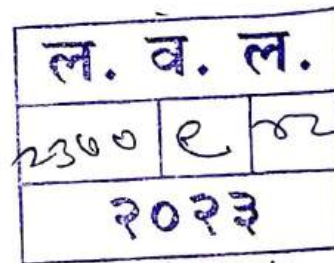 ल. व. ल.
२३७० ९ ४२
२०२३